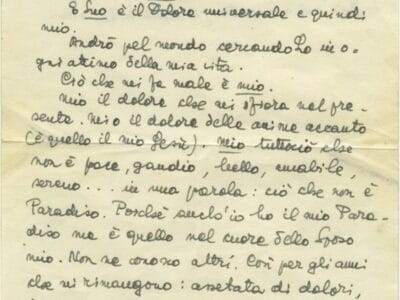 E Suo è il Dolore universale e quindi
mio.
Andrò pel mondo cercandoLo in o-
gni attimo della mia vita.
Ciò che mi fa male è mio.
Mio il dolore che mi sfiora nel pre-
sente. Mio il dolore delle anime accanto
(è quello il mio Gesù). Mio tuttociò che
non è pace, gaudio, bello, amabile,
sereno... in una parola: ciò che non è
Paradiso. Poichè anch'io ho il mio Para-
diso ma è quello nel cuore dello Sposo
mio. Non ne conosco altri. Così per gli anni
che mi rimangono: assetata di dolori,